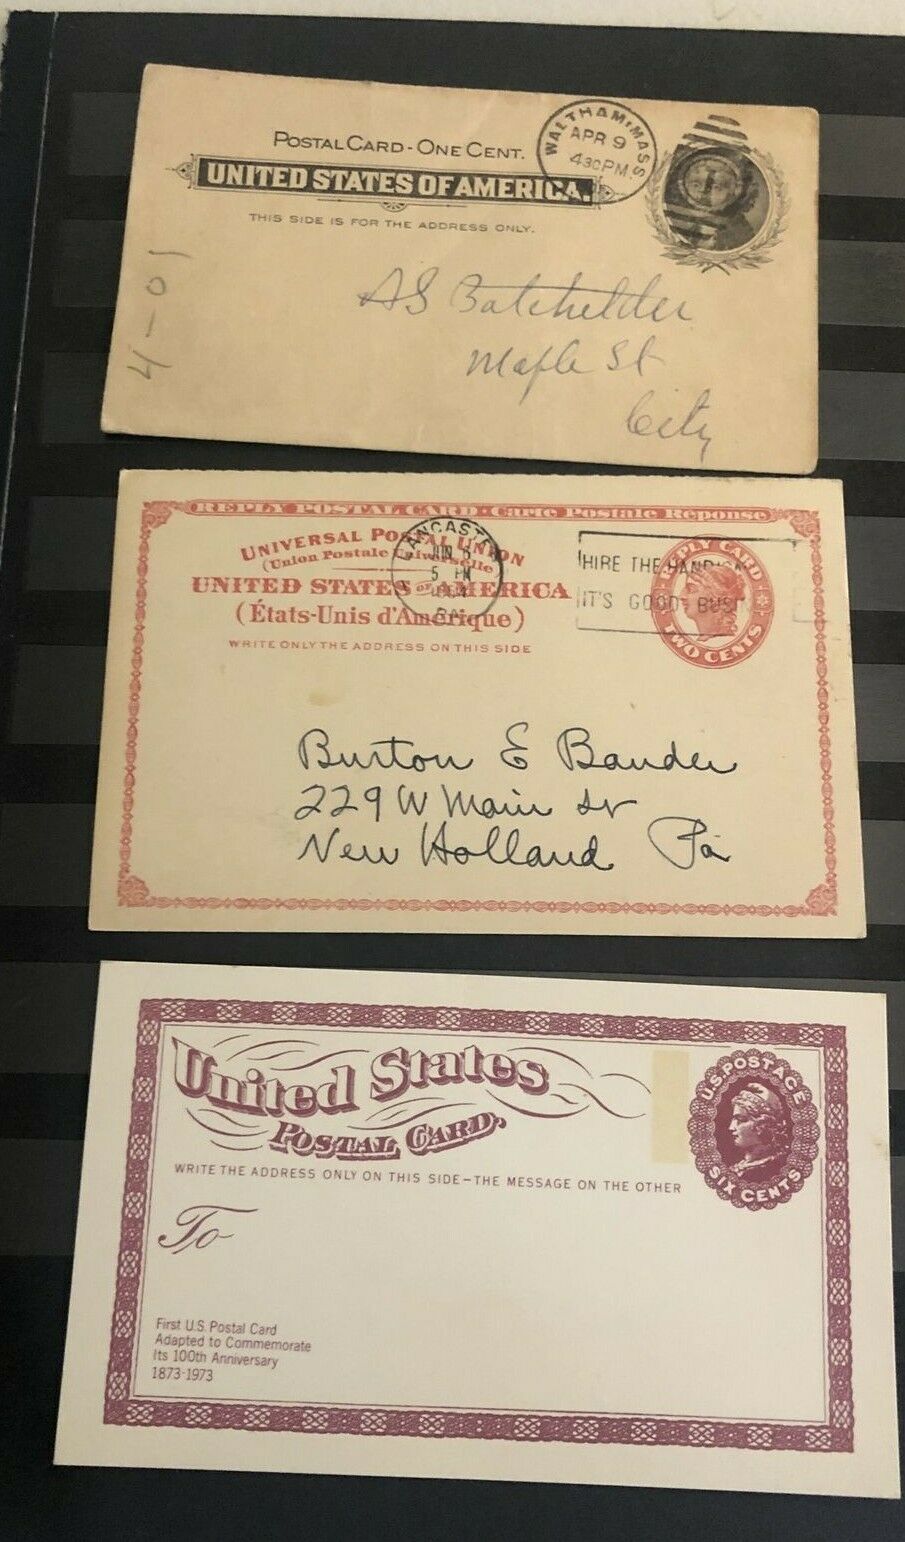 POSTAL CARD-ONE CENT.
UNITED STATES OF AMERICA.
THIS SIDE IS FOR THE ADDRESS ONLY.
WALTHAM, MASS
APR 9
4 30 PM
1
4-01
AS Batchelder
Maple St
City
REPLY POSTAL CARD · Carte Postale Réponse
UNIVERSAL POSTAL UNION
(Union Postale Universelle)
UNITED STATES OF AMERICA
(États-Unis d'Amérique)
WRITE ONLY THE ADDRESS ON THIS SIDE
LANCASTER
JUN
5 PM
PA
HIRE THE
IT'S GOOD BUS
REPLY CARD
TWO CENTS
Burton E Bauder
229 W Main St
New Holland Pa
United States
POSTAL CARD.
WRITE THE ADDRESS ONLY ON THIS SIDE-THE MESSAGE ON THE OTHER
U.S. POSTAGE
SIX CENTS
To
First U.S. Postal Card
Adapted to Commemorate
Its 100th Anniversary
1873-1973